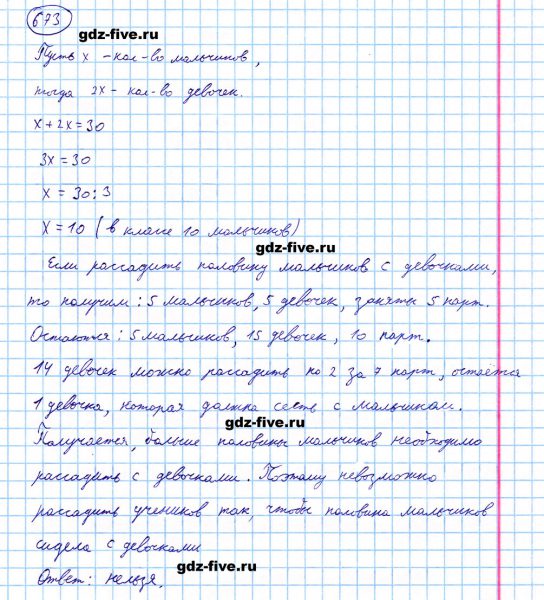 673
gdz-five.ru
Пусть x - кол-во мальчиков,
тогда 2x - кол-во девочек.
x + 2x = 30
3x = 30
x = 30 : 3
x = 10 ( в классе 10 мальчиков)
gdz-five.ru
Если рассадить половину мальчиков с девочками,
то получим : 5 мальчиков, 5 девочек, заняты 5 парт.
gdz-five.ru
Остаются : 5 мальчиков, 15 девочек, 10 парт.
14 девочек можно рассадить по 2 за 7 парт, остаётся
1 девочка, которая должна сесть с мальчиком.
gdz-five.ru
Получается, больше половины мальчиков необходимо
рассадить с девочками. Поэтому невозможно
рассадить учеников так, чтобы половина мальчиков
сидела с девочками
gdz-five.ru
Ответ: нельзя.